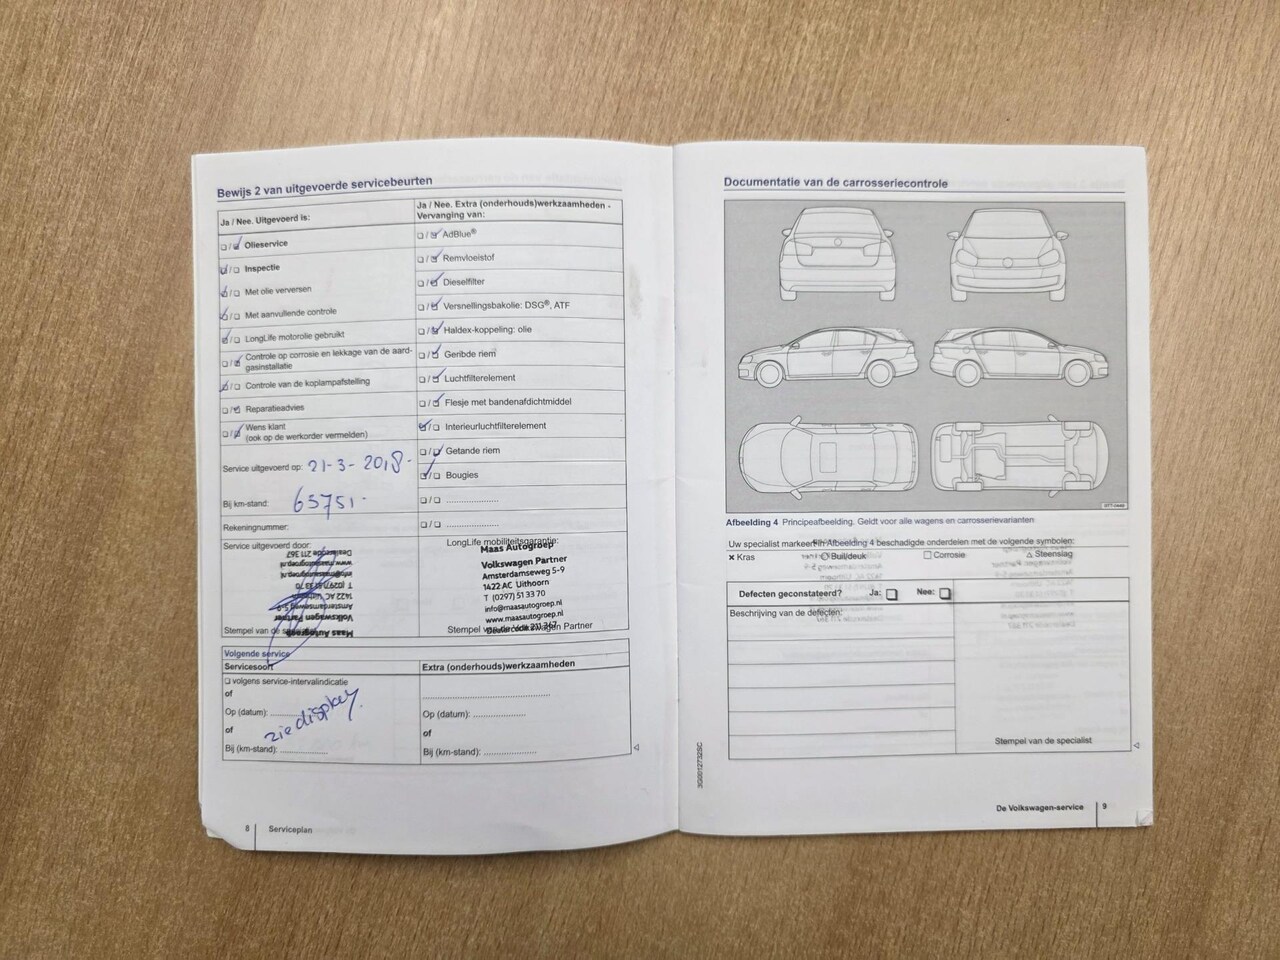 Bewijs 2 van uitgevoerde servicebeurten
Ja / Nee. Uitgevoerd is:
Olieservice
Inspectie
Met olie verversen
Met aanvullende controle
LongLife motorolie gebruikt
Controle op corrosie en lekkage van de aard-
gasinstallatie
Controle van de koplampafstelling
Reparatieadvies
Wens klant
(ook op de werkorder vermelden)
Service uitgevoerd op: 21-3-2018.
Bij km-stand: 65751.
Rekeningnummer:
Service uitgevoerd door:
Dealercode 211 367
www.maasautogroep.nl
info@maasautogroep.nl
T (0297) 51 33 70
1422 AC Uithoorn
Amsterdamseweg 5-9
Volkswagen Partner
Maas Autogroep
Stempel van de
Ja / Nee. Extra (onderhouds)werkzaamheden -
Vervanging van:
AdBlue®
Remvloeistof
Dieselfilter
Versnellingsbakolie: DSG®, ATF
Haldex-koppeling: olie
Geribde riem
Luchtfilterelement
Flesje met bandenafdichtmiddel
Interieurluchtfilterelement
Getande riem
Bougies
LongLife mobiliteitsgarantie:
Maas Autogroep
Volkswagen Partner
Amsterdamseweg 5-9
1422 AC Uithoorn
T (0297) 51 33 70
info@maasautogroep.nl
www.maasautogroep.nl
Dealercode 211 367
Stempel van de Volkswagen Partner
Volgende service
Servicesoort
volgens service-intervalindicatie
of
Op (datum):
zie display.
of
Bij (km-stand):
Extra (onderhouds)werkzaamheden
Op (datum):
of
Bij (km-stand):
8 Serviceplan
Documentatie van de carrosseriecontrole
Afbeelding 4 Principeafbeelding. Geldt voor alle wagens en carrosserievarianten
Uw specialist markeert in Afbeelding 4 beschadigde onderdelen met de volgende symbolen:
Kras Buil/deuk Corrosie Steenslag
Defecten geconstateerd? Ja: Nee:
Beschrijving van de defecten:
Stempel van de specialist
3G0012732SC
De Volkswagen-service 9